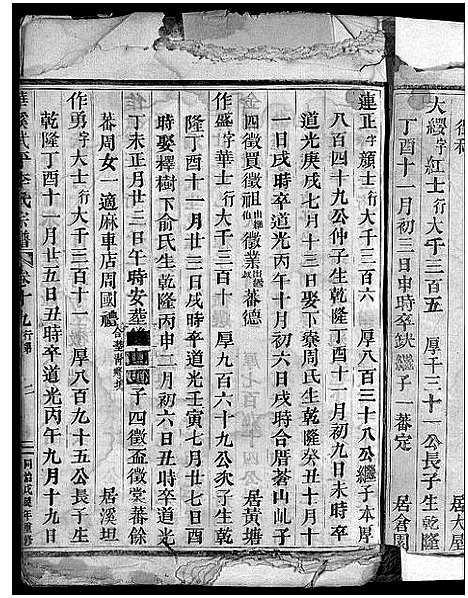 大纓字紅士行大千三百五　厚千三十一公長子生乾隆
丁酉十一月初三日申時卒缺繼子一蕃定　居倉園
蓮正字顏士行大千三百六　厚八百三十八公繼子本厚
八百四十九公仲子生乾隆丁酉十一月初九日未時卒
道光庚戌七月十三日娶下寮周氏生乾隆癸丑十月十
一日戌時卒道光丙午十月初六日戌時合厝菴山屼子
四徵買徵祖徵業蕃德　居黃塘
作盛字華士行大千三百十　厚九百六十九公次子生乾
隆丁酉十一月廿三日戌時卒道光壬寅七月廿七日酉
時娶檡樹下俞氏生乾隆丙申二月初六日丑時卒道光
丁未正月廿二日午時安葬 子四徵盃徵堂蕃餘
蕃周女一適麻車店周國 居溪坦
作勇字大士行大千三百十一　厚八百九十五公長子生
乾隆丁酉十一月廿五日丑時卒道光丙午九月十九日
李氏宗譜　卷十九 行第